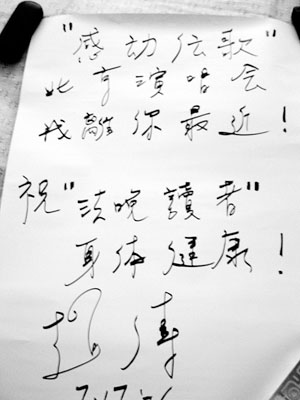 "感动传歌"
北京演唱会
我離你最近！
祝"法晚讀者"
身体健康！
趙傳